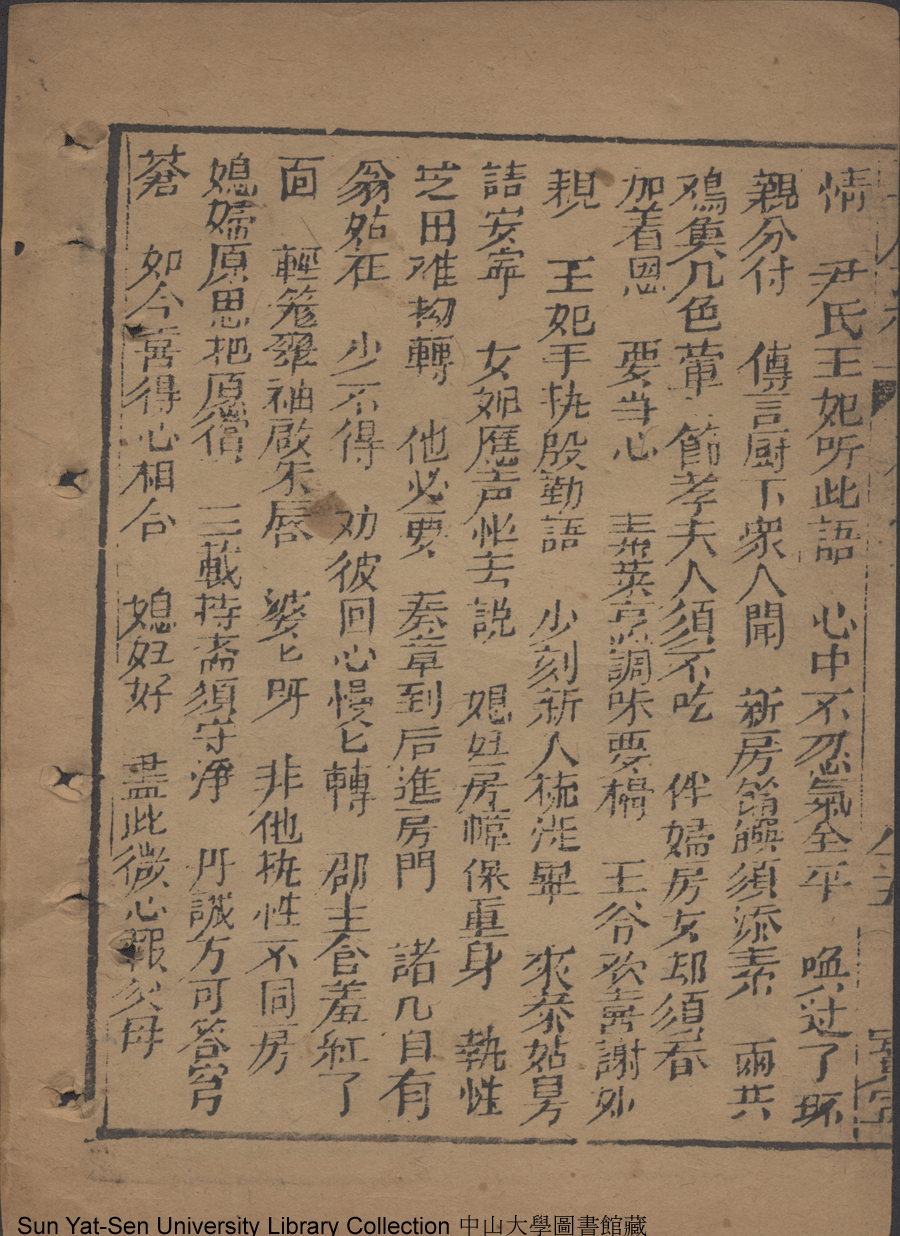 情 尹氏王妃听此語 心中不忍氣全平 喚过了
親分付 傳言厨下衆人聞 新房饌須添素 兩共
鴉几色葷 節孝夫人須不吃 伴婦房女却須春
加着恩 要当心 素菜烹調味要 王爷欢喜謝外
親 王妃手执殷勤語 少刻新人梳洗畢 來叅姑舅
詰安寧 女娘應声出去説 媳妇房幃保重身 執性
芝田难拗轉 他必要 奏章到后進房門 諸凡自有
翁姑在 少不得 劝彼回心慢匕轉 郡主含羞紅了
面 輕籠翠袖啟朱唇 婆匕呀 非他执性不同房
媳婦原思把原償 三載持斋須守淨 丹誠方可答穹
蒼 如今喜得心相合 媳妇好 盡此微心報父母
Sun Yat-Sen University Library Collection 中山大學圖書館藏